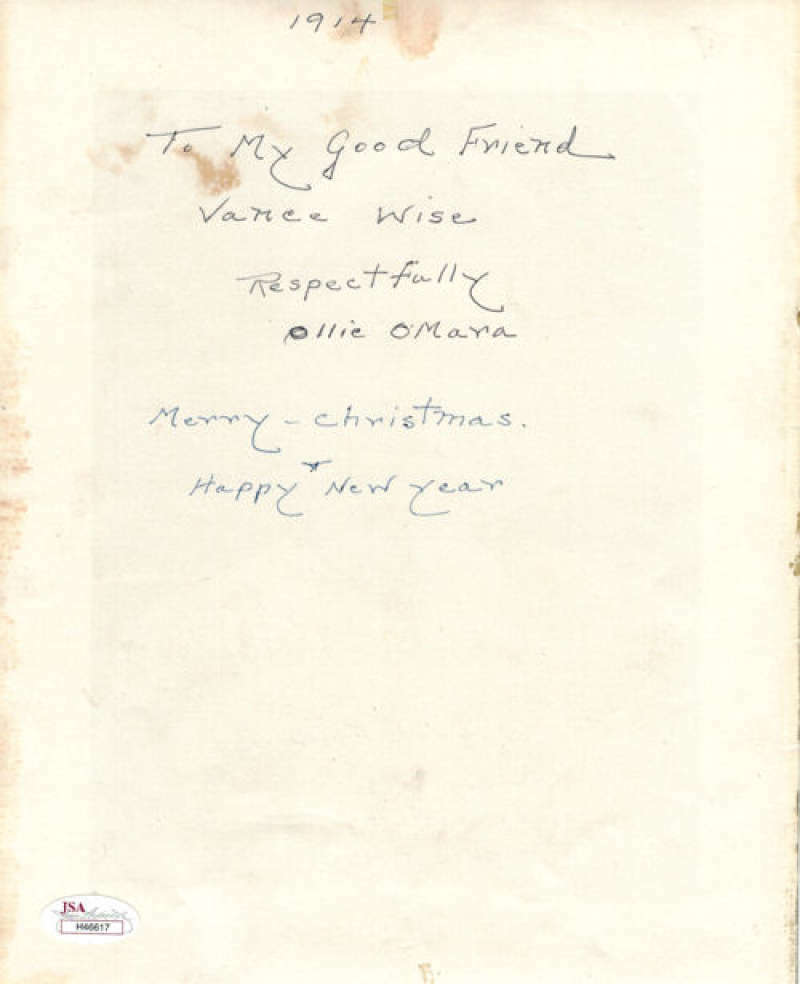 1914
To My Good Friend
Vance Wise
Respectfully
Ollie O'Mara
Merry - christmas.
Happy New year
JSA
H46617